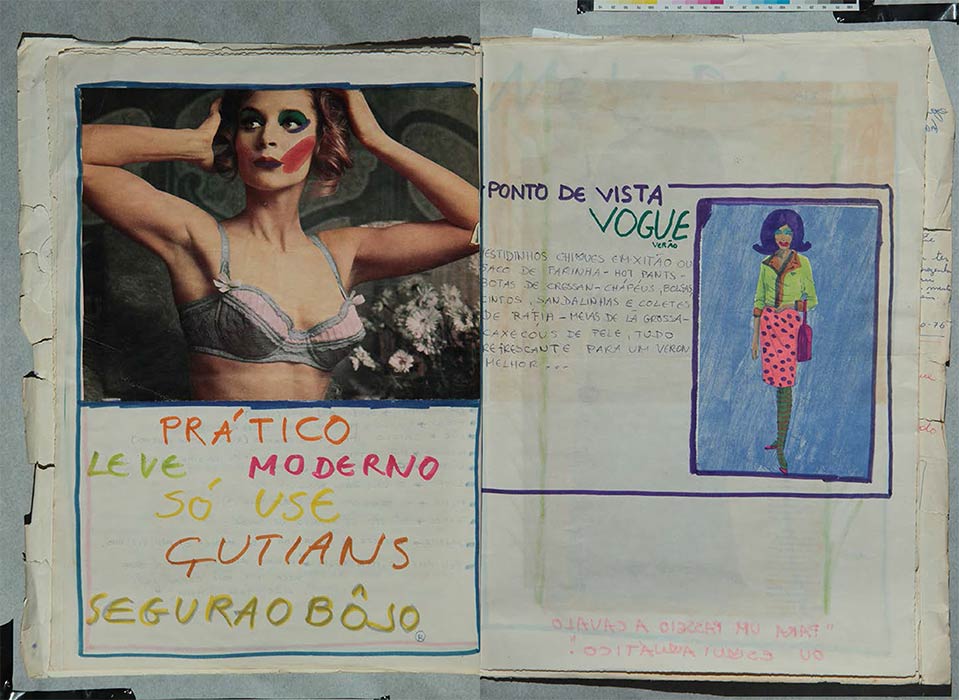 PRÁTICO
LEVE MODERNO
SÓ USE
GUTIANS
SEGURA O BÔJO ®
PONTO DE VISTA
VOGUE
VERÃO
ESTIDINHOS CHIQUES EM XITÃO OU
SACO DE FARINHA - HOT PANTS -
BOTAS DE CRESSAN - CHAPÉUS, BOLSAS
CINTOS, SANDALINHAS E COLETES
DE RAFIA - MEIAS DE LÃ GROSSA -
CAXECOUS DE PELE, TUDO
REFRESCANTE PARA UM VERON
MELHOR ...
"PARA UM PASSEIO A CAVALO
OU ESQUI AQUATICO".